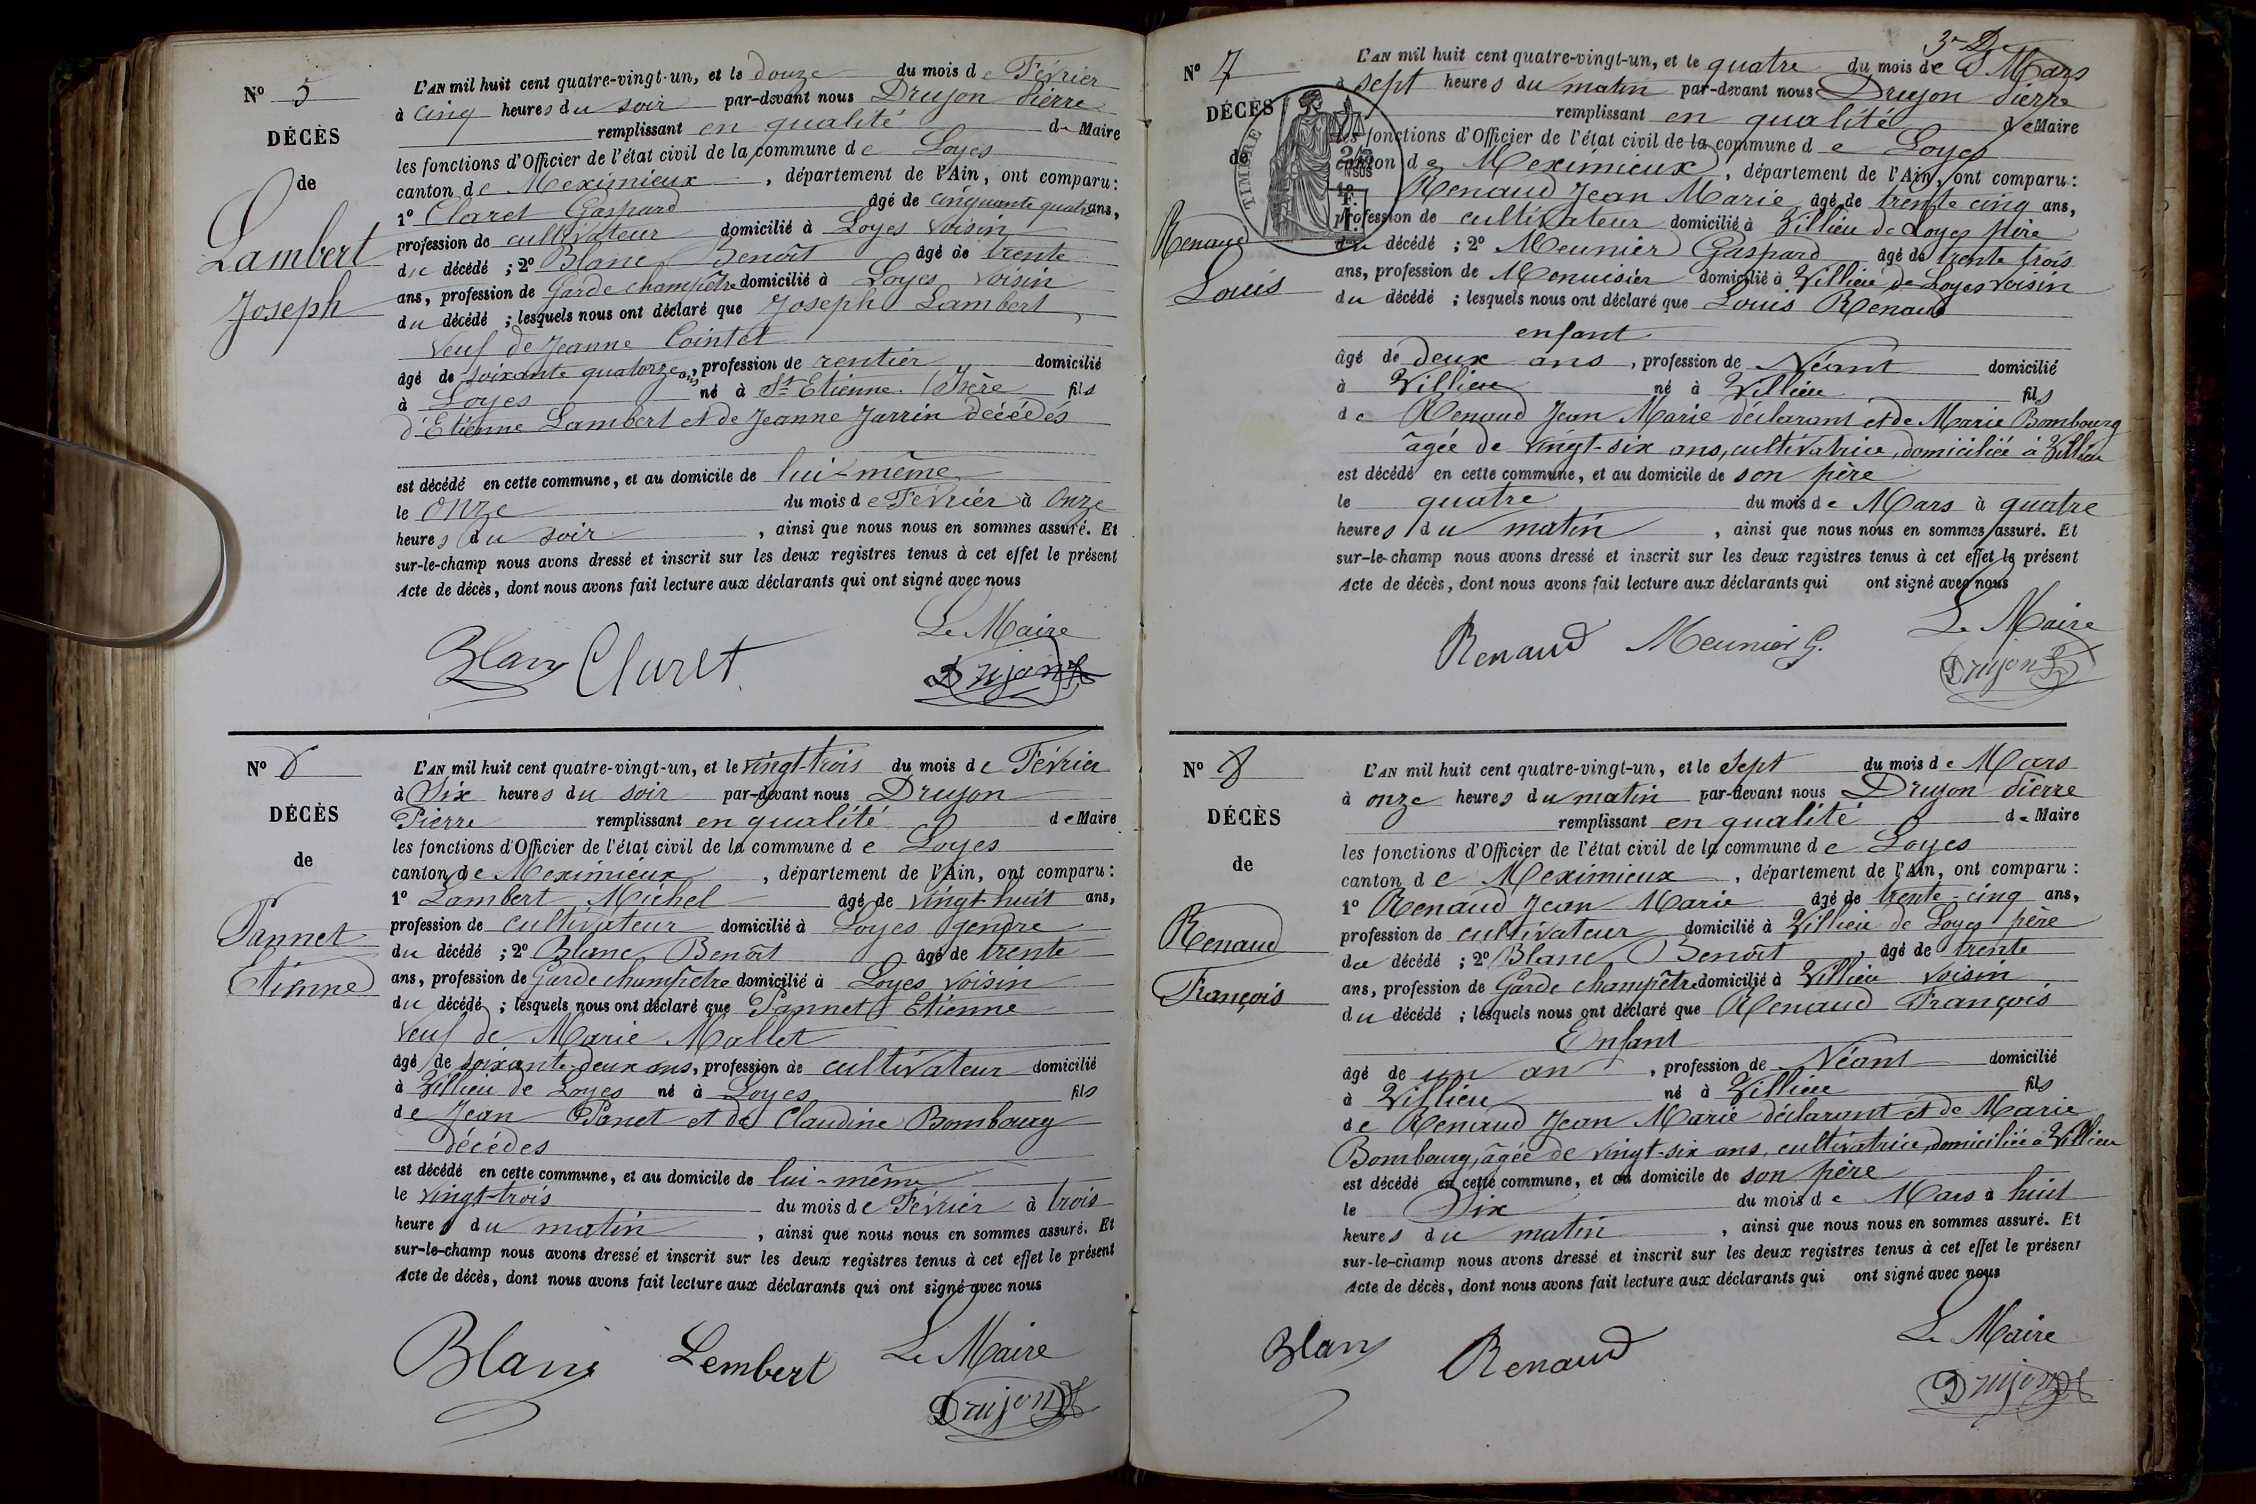 N° 5
DÉCÈS
de
Lambert
Joseph
L'AN mil huit cent quatre-vingt-un, et le douze du mois de Février
à cinq heures du soir par-devant nous Drujon Pierre
remplissant en qualité de Maire
les fonctions d'Officier de l'état civil de la commune de Loyes
canton de Meximieux, département de l'Ain, ont comparu:
1° Claret Gaspard âgé de cinquante quatre ans,
profession de cultivateur domicilié à Loyes voisin
du décédé ; 2° Blanc Benoît âgé de trente
ans, profession de Garde champêtre domicilié à Loyes voisin
du décédé ; lesquels nous ont déclaré que Joseph Lambert
veuf de Jeanne Cointet
âgé de soixante quatorze ans, profession de rentier domicilié
à Loyes né à St Etienne Isère fils
d'Etienne Lambert et de Jeanne Jarrin décédés
est décédé en cette commune, et au domicile de lui-même
le onze du mois de Février à onze
heures du soir, ainsi que nous nous en sommes assuré. Et
sur-le-champ nous avons dressé et inscrit sur les deux registres tenus à cet effet le présent
Acte de décès, dont nous avons fait lecture aux déclarants qui ont signé avec nous
Le Maire
Blanc Claret Drujon
N° 6
DÉCÈS
de
Pannet
Etienne
L'AN mil huit cent quatre-vingt-un, et le vingt-trois du mois de Février
à Six heures du soir par-devant nous Drujon
Pierre remplissant en qualité de Maire
les fonctions d'Officier de l'état civil de la commune de Loyes
canton de Meximieux, département de l'Ain, ont comparu:
1° Lambert Michel âgé de vingt-huit ans,
profession de cultivateur domicilié à Loyes gendre
du décédé ; 2° Blanc Benoît âgé de trente
ans, profession de Garde champêtre domicilié à Loyes voisin
du décédé ; lesquels nous ont déclaré que Pannet Etienne
veuf de Marie Mallet
âgé de soixante-deux ans, profession de cultivateur domicilié
à Villieu de Loyes né à Loyes fils
de Jean Panet et de Claudine Bombourg
décédes
est décédé en cette commune, et au domicile de lui-même
le vingt-trois du mois de Février à trois
heures du matin, ainsi que nous nous en sommes assuré. Et
sur-le-champ nous avons dressé et inscrit sur les deux registres tenus à cet effet le présent
Acte de décès, dont nous avons fait lecture aux déclarants qui ont signé avec nous
Blanc Lembert Le Maire
Drujon
N° 7
DÉCÈS
de
Renaud
Louis
TIMBRE
L'AN mil huit cent quatre-vingt-un, et le quatre du mois de Mars
à sept heures du matin par-devant nous Drujon Pierre
remplissant en qualité de Maire
les fonctions d'Officier de l'état civil de la commune de Loyes
canton de Meximieux, département de l'Ain, ont comparu:
1° Renaud Jean Marie âgé de trente cinq ans,
profession de cultivateur domicilié à Villieu de Loyes père
du décédé ; 2° Meunier Gaspard âgé de trente trois
ans, profession de Menuisier domicilié à Villieu de Loyes voisin
du décédé ; lesquels nous ont déclaré que Louis Renaud
enfant
âgé de deux ans, profession de Néant domicilié
à Villieu né à Villieu fils
de Renaud Jean Marie déclarant et de Marie Bombourg
âgée de vingt-six ans, cultivatrice, domiciliée à Villieu
est décédé en cette commune, et au domicile de son père
le quatre du mois de Mars à quatre
heures du matin, ainsi que nous nous en sommes assuré. Et
sur-le-champ nous avons dressé et inscrit sur les deux registres tenus à cet effet le présent
Acte de décès, dont nous avons fait lecture aux déclarants qui ont signé avec nous
Le Maire
Renaud Meunier G. Drujon
N° 8
DÉCÈS
de
Renaud
François
L'AN mil huit cent quatre-vingt-un, et le Sept du mois de Mars
à onze heures du matin par-devant nous Drujon Pierre
remplissant en qualité de Maire
les fonctions d'Officier de l'état civil de la commune de Loyes
canton de Meximieux, département de l'Ain, ont comparu :
1° Renaud Jean Marie âgé de trente-cinq ans,
profession de cultivateur domicilié à Villieu de Loyes père
du décédé ; 2° Blanc Benoît, âgé de trente
ans, profession de Garde champêtre domicilié à Villieu voisin
du décédé ; lesquels nous ont déclaré que Renaud François
Enfant
âgé de un an, profession de Néant domicilié
à Villieu né à Villieu fils
de Renaud Jean Marie déclarant et de Marie
Bombourg, âgée de vingt-six ans, cultivatrice, domiciliée à Villieu
est décédé en cette commune, et au domicile de son père
le Six du mois de Mars à huit
heures du matin, ainsi que nous nous en sommes assuré. Et
sur-le-champ nous avons dressé et inscrit sur les deux registres tenus à cet effet le présent
Acte de décès, dont nous avons fait lecture aux déclarants qui ont signé avec nous
Le Maire
Blanc Renaud Drujon